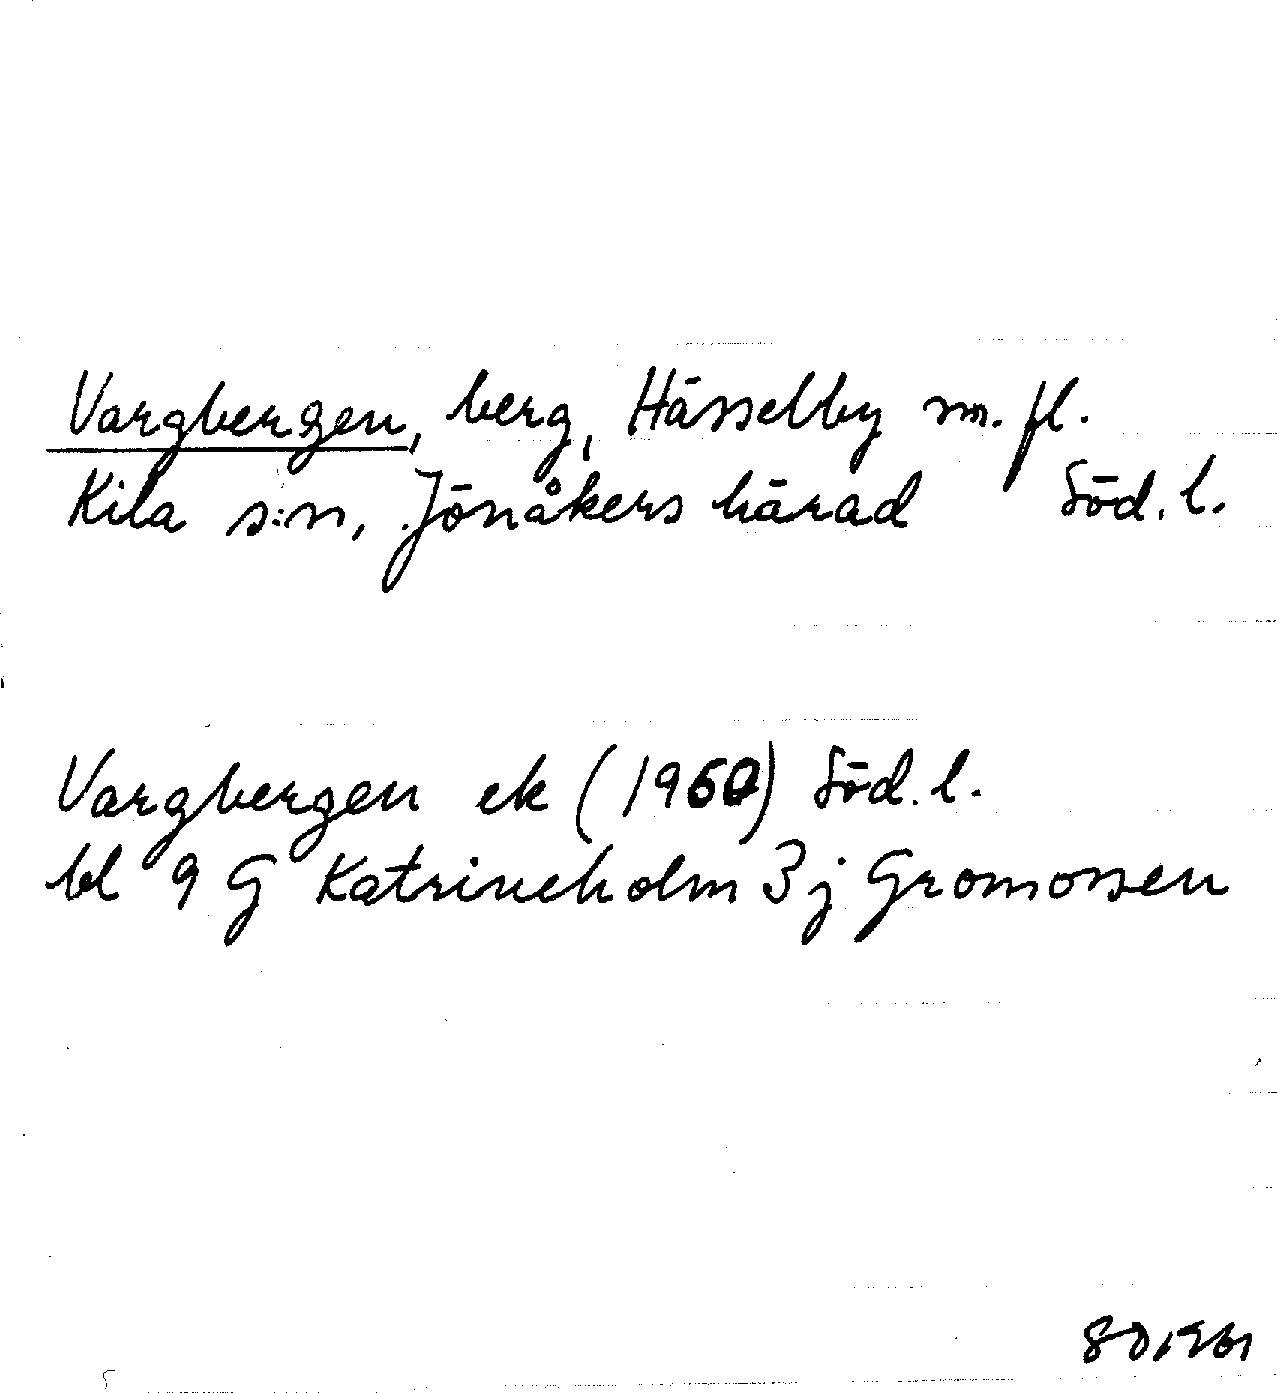 Vargbergen, berg, Hässelby m. fl.
Kila s:n, Jönåkers härad Söd. l.
Vargbergen ek (1960) Söd. l.
bl 9 G Katrineholm 3 j Gromossen